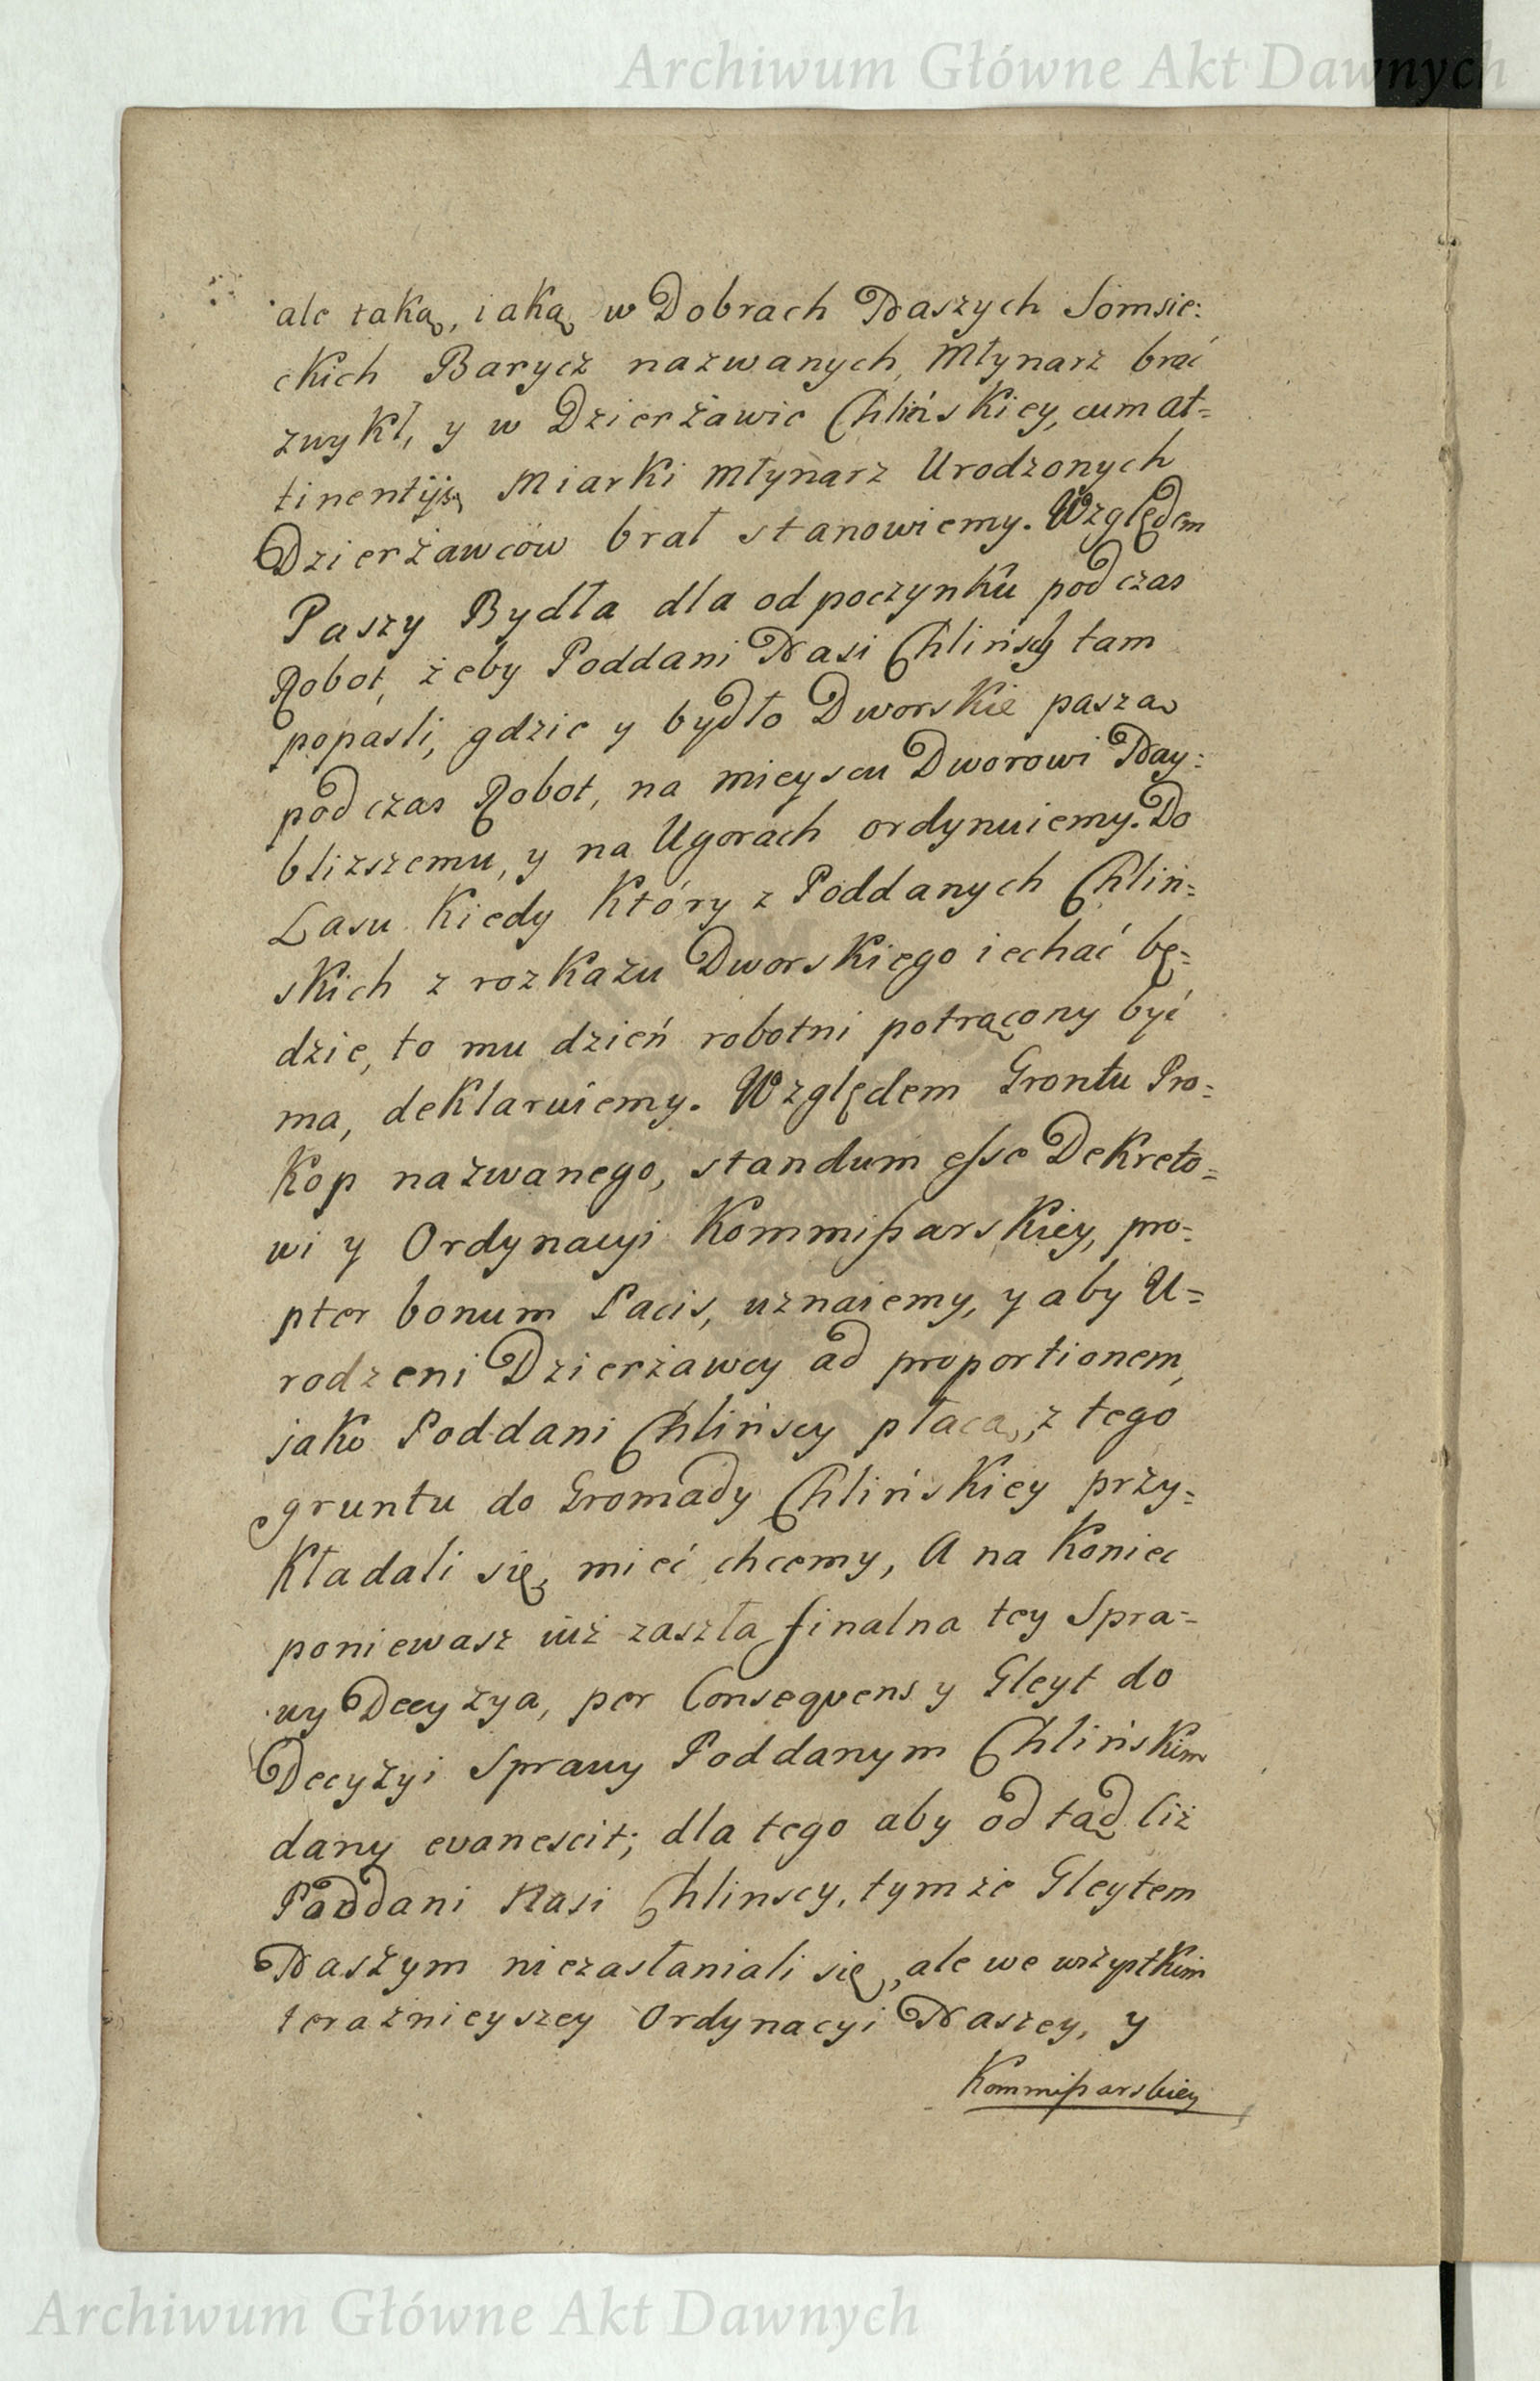 Archiwum Główne Akt Dawnych
ale taką, iaką w Dobrach Naszych Somsie:
ckich Barycz nazwanych, Młynarz brać
zwykł, y w Dzierżawie Chlińskiey, cum at=
tinentijs, Miarki Młynarz Urodzonych
Dzierżawców brał stanowiemy. Względem
Paszy Bydła dla odpoczynku podczas
Robot, żeby Poddani Nasi Chlińscy tam
popasli, gdzie y bydło Dworskie paszą
podczas Robot, na mieyscu Dworowi Nay:
bliższemu, y na Ugorach ordynuiemy. Do
Lasu kiedy który z Poddanych Chliń=
skich z rozkazu Dworskiego iechać bę=
dzie, to mu dzień robotni potrącony być
ma, deklaruiemy. Względem Grontu Pro=
kop nazwanego, standum esse Dekreto=
wi y Ordynacyi Kommißarskiey, pro=
pter bonum Pacis, uznaiemy, y aby U=
rodzeni Dzierżawcy ad proportionem,
jako Poddani Chlińscy płacą, z tego
gruntu do Gromady Chlińskiey przy=
kładali się, mieć chcemy, A na koniec
poniewasz iuż zaszła finalna tey Spra=
wy Decyzya, per Consequens y Gleyt do
Decyzyi Sprawy Poddanym Chlińskim
dany evanescit; dla tego aby od tąd Ciż
Poddani Nasi Chlinscy, tymże Gleytem
Naszym niezasłaniali się, ale we wszystkim
teraznieyszey Ordynacyi Naszey, y
Kommißarskiey
Archiwum Główne Akt Dawnych